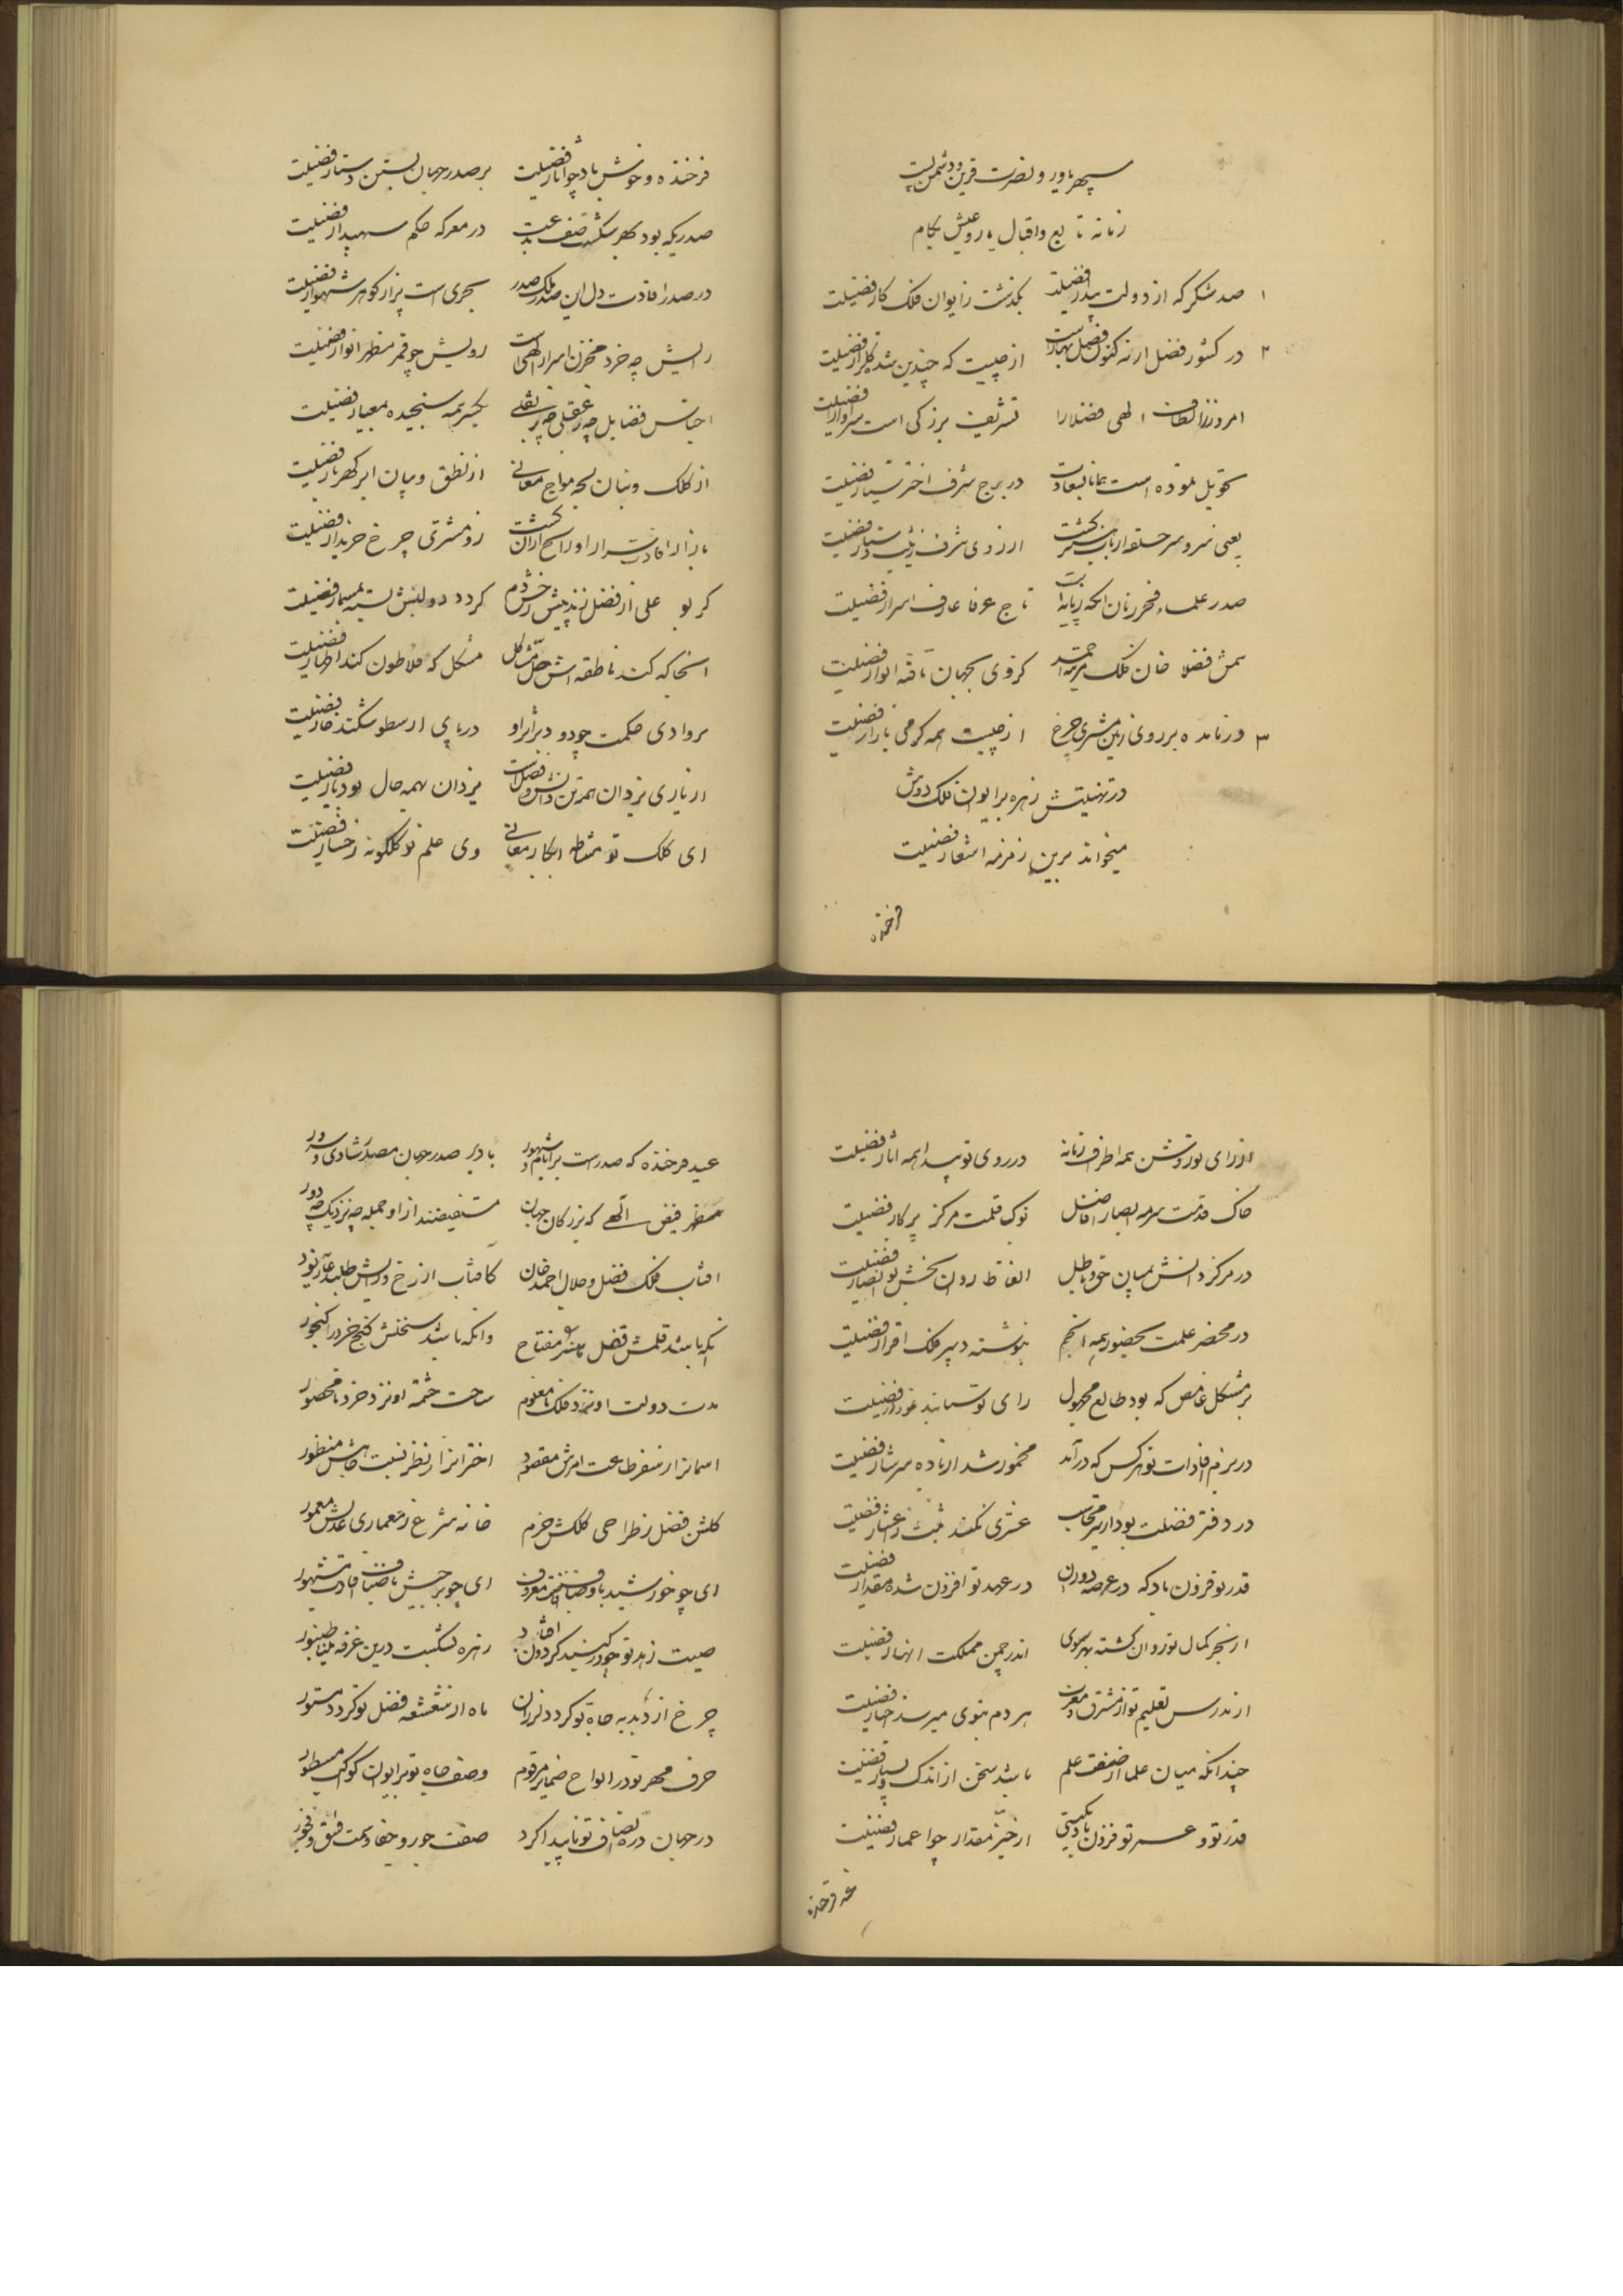 سپهر یاور و نصرت قرین و دشمن پست
زمانه تابع و اقبال یار و عیش بکام
۱ صد شکر که از دولت بیدار فضیلت بگذشت ز ایوان فلک کار فضیلت
۲ در کشور فضل ار نه کنون فصل بهار است از چیست که چندین شده گلزار فضیلت
امروز ز الطاف الهی فضلا را تشریف بزرگی است سزاوار فضیلت
تحویل نموده است بسعادت در برج شرف اختر سیار فضیلت
یعنی سر و سر حلقه ارباب از روی شرف زیب دستار فضیلت
صدر علماء فخر زمان انکه تاج عرفا عارف اسرار فضیلت
شمس فضلا خان فلک مرتبه احمد کز وی بجهان تافته انوار فضیلت
۳ ور نامده بر روی زمین مشتری چرخ از چیست همه گرمی بازار فضیلت
در تهنیتش زهره بر ایوان فلک دوش
میخواند برین زمزمه اشعار فضیلت
فرخنده
فرخنده و خوش باد چو اثار فضیلت بر صدر جهان بستن دستار فضیلت
صدریکه بود بهر شکست صف بدعت در معرکه حکم سپهدار فضیلت
در صدر افادت دل این صدر ملک صدر بحری است پر از گوهر شهوار فضیلت
رایش چه خرد مخزن اسرار الهی است رویش چو قمر مظهر انوار فضیلت
اجناس فضایل چه ز عقلی چه ز نقلی یکسر همه سنجیده بمعیار فضیلت
از کلک و بنان لجه مواج معانی از نطق و بیان ابر گهربار فضیلت
بازار افادت ز مشتری چرخ خریدار فضیلت
گر بو علی از فضل زند پیش رخش دم گردد دو لبش بسته بمسمار فضیلت
انجا که کند ناطقه اش حل مشاکل مشکل که فلاطون کند اظهار فضیلت
بر وادی حکمت چو دود بر اثر او در پای ارسطو شکند خار فضیلت
از یاری یزدان دانش و فضل است یزدان بهمه حال بود یار فضیلت
ای کلک تو مشاطه ابکار معانی وی علم تو گلگونه رخسار فضیلت
از رای تو روشن همه اطراف زمانه در روی تو پیدا همه اثار فضیلت
خاک قدمت سرمه ابصار افاضل نوک قلمت مرکز پرکار فضیلت
در مرکز دانش بمیان حق و باطل الفاظ
در محضر علمت بحضور همه انجم بنوشته دبیر فلک اقرار فضیلت
بر مشکل غامض که بود طالع مجهول رای تو
در بزم افادات تو هر کس که در آمد مخمور شد از باده سرشار فضیلت
در دفتر فضلت بود ار تیر محاسب عشری نکند ثبت ز اعشار فضیلت
قدر تو فزون باد که در عرصه دوران در عهد تو افزون شده مقدار فضیلت
از بحر کمال تو روان گشته بهر سوی اندر چمن مملکت انهار فضیلت
از مدرس تعلیم تو از مشرق و مغرب هر دم بنوی میرسد اخبار فضیلت
چندانکه میان علما از صفت علم باشد سخن از اندک و بسیار فضیلت
قدر تو و عمر تو فزون باد از حیز مقدار چو اعمار فضیلت
عید فرخنده
عید فرخنده که صدرست بر ایام و شهور باد بر صدر جهان مصدر شادی و سرور
مظهر فیض الهی که بزرگان جهان مستفیضند از او جمله چه نزدیک چه دور
افتاب فلک فضل و جلال احمد خان کافتاب از رخ و رایش طلبد عاریه نور
انکه باشد قلمش قفل هنر را مفتاح وانکه باشد سخنش گنج خرد را گنجور
مدت دولت او نزد فلک نامعلوم ساحت حشمت او نزد خرد نامحصور
اسمان را ز سفر طاعت امرش مقصود اختران را ز نظر نسبت جاهش منظور
گلشن فضل ز طراحی کلکش خرم خانه شرع ز معماری عدلش معمور
ای چو خورشید معروف ای چو برجیس افادت مشهور
صیت زهد تو چو در گنبد گردون افتاد زهره بشکست درین غرفه مینا طنبور
چرخ از دبدبه جاه تو گردد لرزان ماه از شعشعه فضل تو گردد مستور
حرف مهر تو در الواح ضمایر مرقوم وصف جاه تو بر ایوان کواکب مسطور
در جهان دره انصاف تو ناپیدا کرد صفت جور و جفا و سمت فسق و فجور